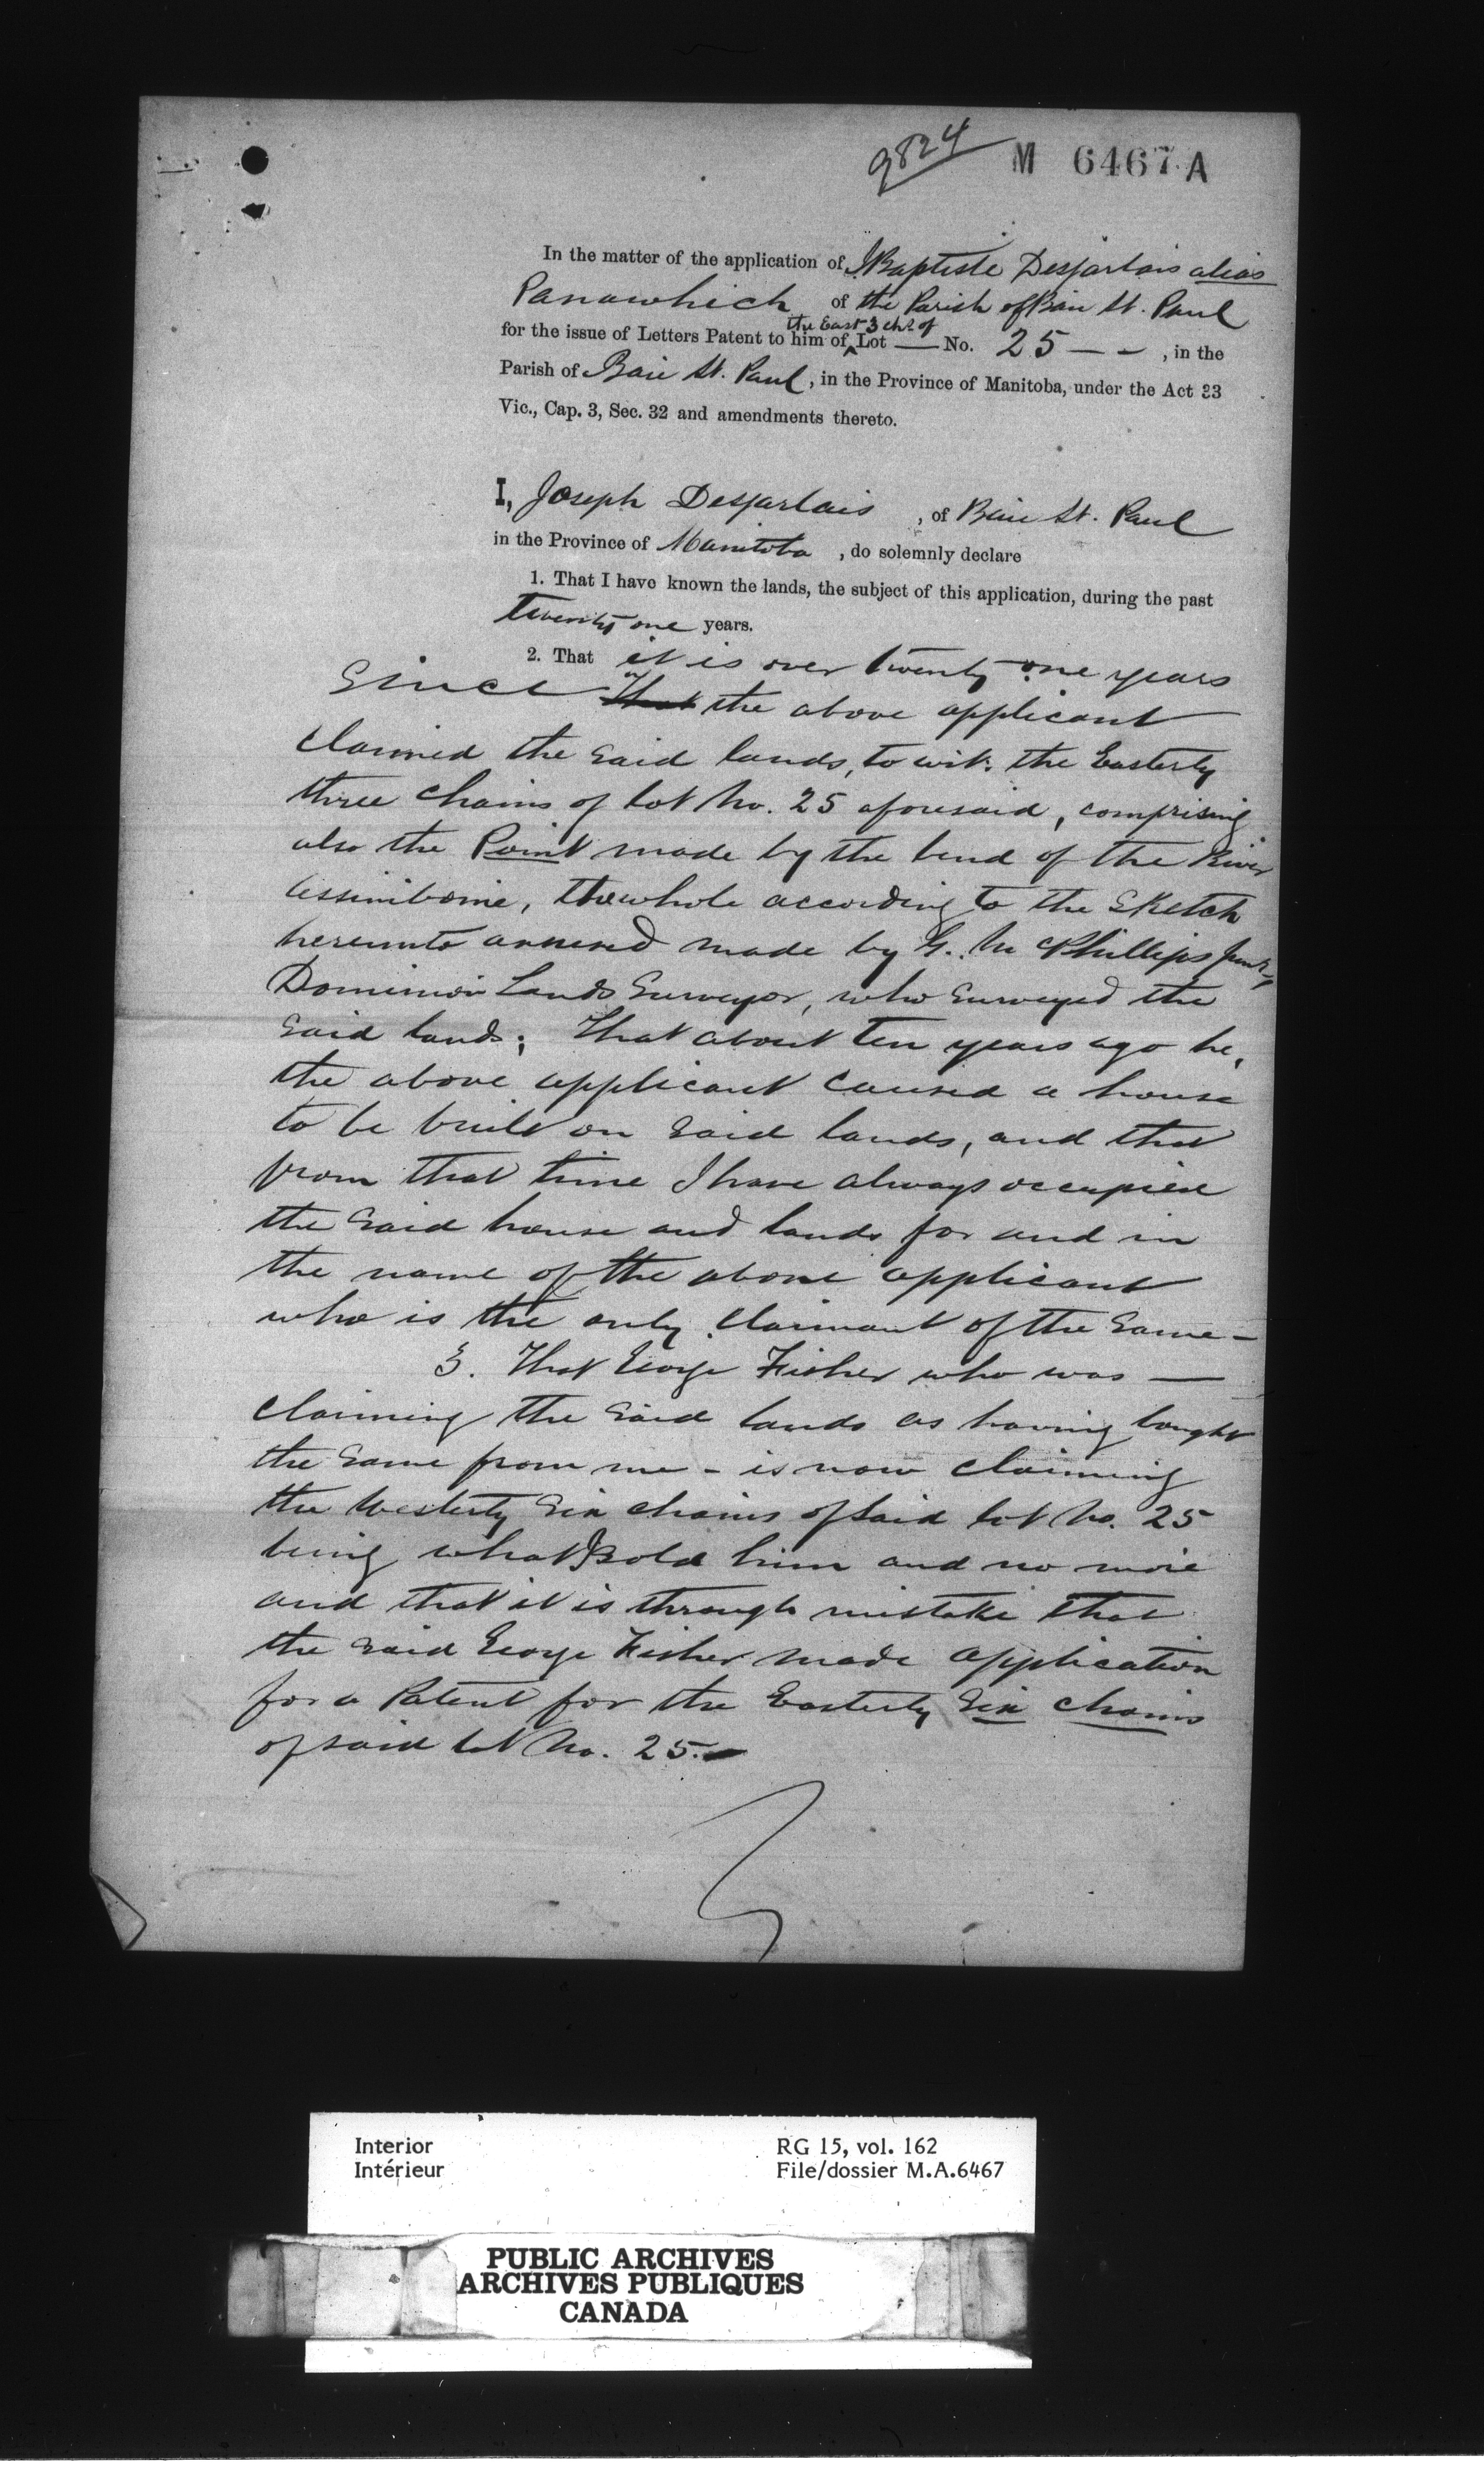 9824
M 6467 A
In the matter of the application of J Baptiste Desjarlais alias
Panawhich of the Parish of Baie St. Paul
the East 3 chs of
for the issue of Letters Patent to him of Lot — No. 25 — — , in the
Parish of Baie St. Paul, in the Province of Manitoba, under the Act 33
Vic., Cap. 3, Sec. 32 and amendments thereto.
I, Joseph Desjarlais , of Baie St. Paul
in the Province of Manitoba , do solemnly declare
1. That I have known the lands, the subject of this application, during the past
twenty one years.
2. That it is over twenty one years
Since That the above applicant
claimed the said lands, to wit: the Easterly
three chains of lot No. 25 aforesaid, comprising
also the Point made by the bend of the River
Assiniboine, the whole according to the Sketch
hereunto annexed made by G. McPhillips Junr,
Dominion Lands Surveyor, who surveyed the
said lands; That about ten years ago he,
the above applicant caused a house
to be built on said lands, and that
from that time I have always occupied
the said house and lands for and in
the name of the above applicant
who is the only claimant of the same —
3. That George Fisher who was —
claiming the said lands as having bought
the same from me - is now claiming
the Westerly six chains of said lot No. 25
being what I sold him and no more
and that it is through mistake that
the said George Fisher made application
for a Patent for the Easterly six chains
of said lot No. 25. —
Interior
Intérieur
RG 15, vol. 162
File/dossier M.A.6467
PUBLIC ARCHIVES
ARCHIVES PUBLIQUES
CANADA